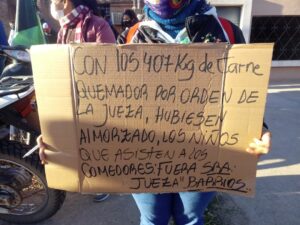 CON los 407 Kg de Carne
QUEMADOR POR ORDEN DE
LA JUEZA, HUBIESEN
ALMORZADO, LOS NIÑOS
QUE ASISTEN A LOS
COMEDORES FUERA SRA.
JUEZA" BARRIOS.